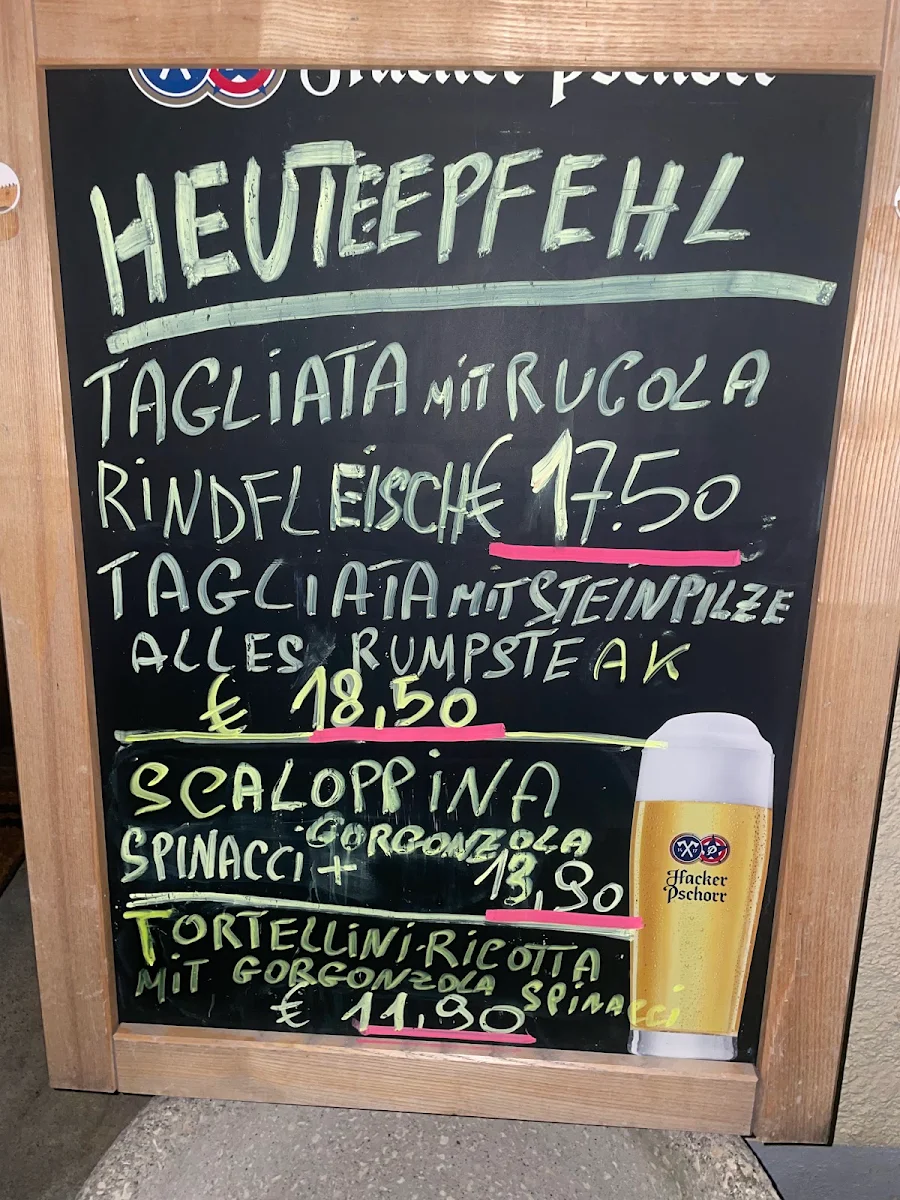 Hacker Pschorr
HEUTE EPFEHL
TAGLIATA MIT RUCOLA
RINDFLEISCH € 17.50
TAGLIATA MIT STEINPILZE
ALLES RUMPSTEAK
€ 18,50
SCALOPPINA
GORGONZOLA
SPINACCI + 13,90
TORTELLINI-RICOTTA
MIT GORGONZOLA SPINACCI
€ 11,90
Hacker
Pschorr